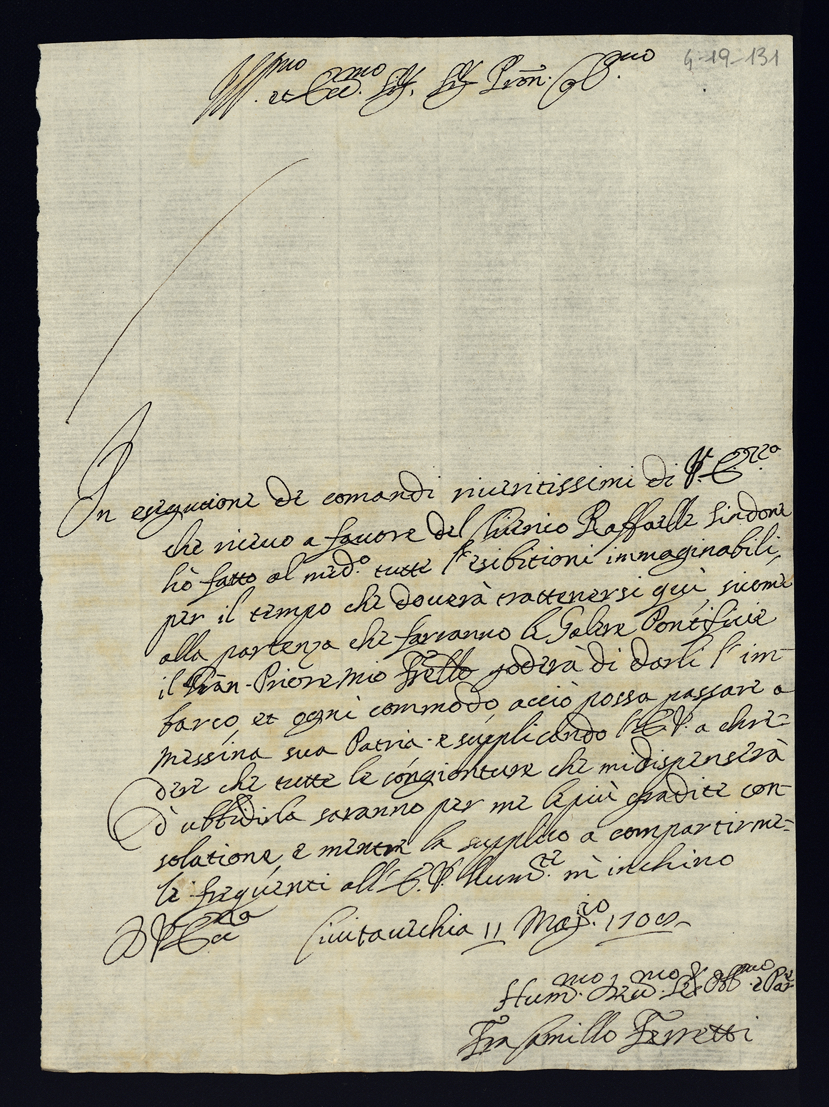 4-19-131
Ill.mo et Ecc.mo Sig. Sig. Pron. Col.mo
In esegutione de comandi riueritissimi di V. Ecc.za
che riceuo a fauore del Chierico Raffaelle Sindone
hò fatto al med.o tutte l'esibitioni immaginabili,
per il tempo che douerà trattenersi quì, sicome
alla partenza che farranno le Galere Pontificie
il Gran Priore mio Frello goderà di darli l'im-
barco et ogni commodo acciò possa passare a
messina sua Patria e supplicando l'E.V. a chre-
dere che tutte le congionture che mi dispenserà
d'ubbidirla saranno per me le più gradite con-
solatione, e mentre la supplico a compartirme-
le frequenti all'E.V. hum.te m'inchino
D V Ecc.za Ciuitauechia 11 Mag.io
Hum.mo
Fra Camillo Ferretti